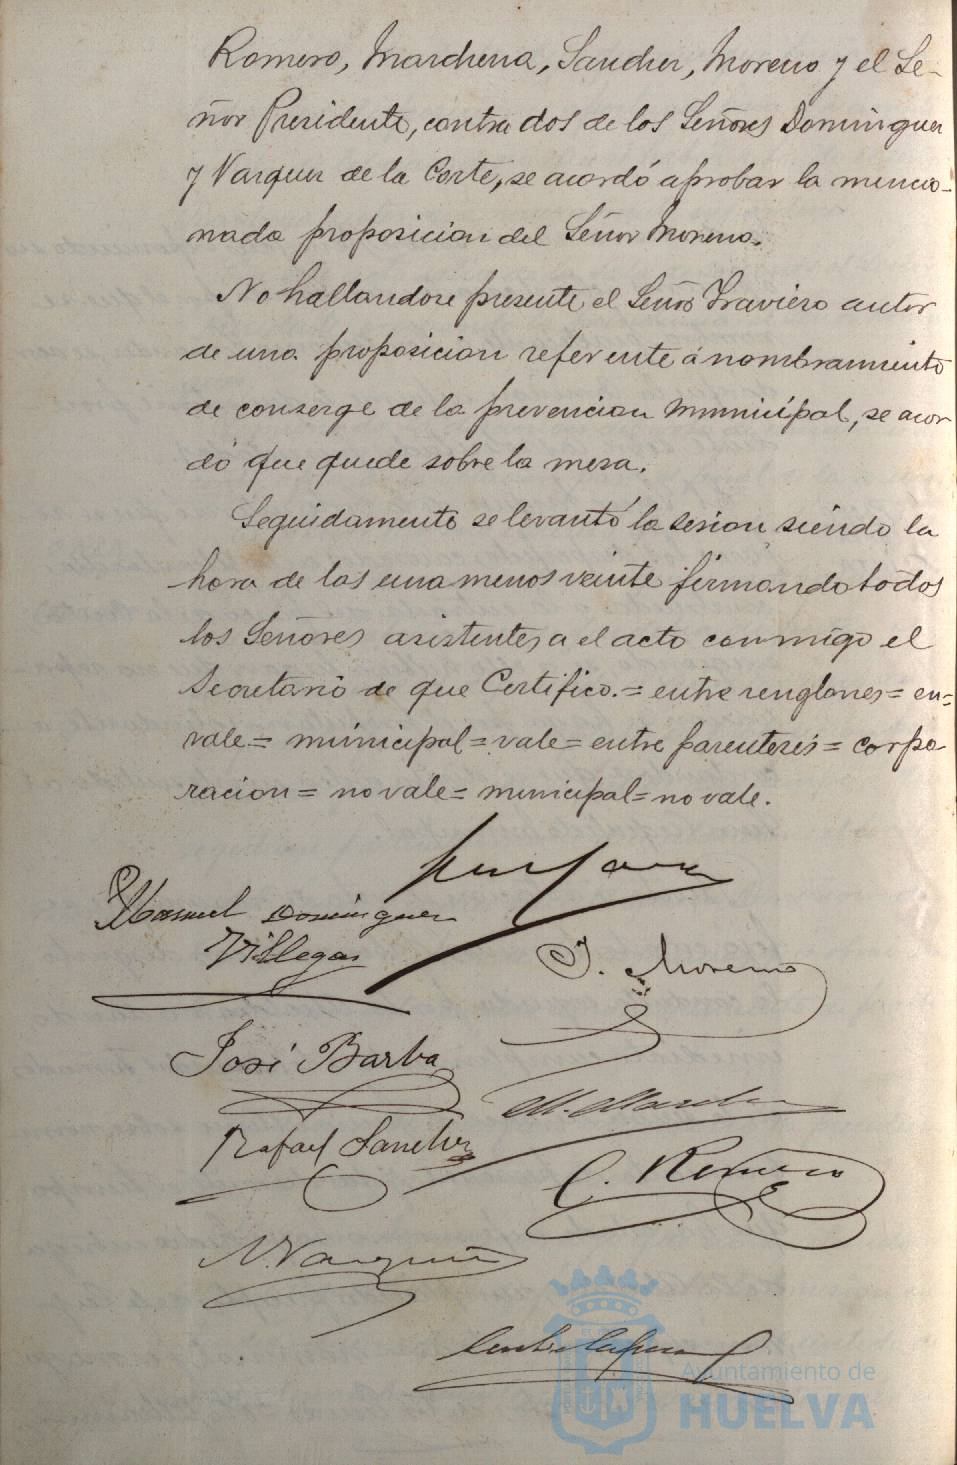 Romero, Marchena, Sanchez, Moreno y el Se-
ñor Presidente, contra dos de los Señores Dominguez
y Vazquez de la Corte, se acordó aprobar la mencio-
nada proposicion del Señor Moreno.
No hallandose presente el Señor Traviero autor
de una proposicion referente á nombramiento
de conserge de la prevencion municipal, se acor
dó que quede sobre la mesa.
Seguidamente se levantó la sesion siendo la
hora de las una menos veinte firmando todos
los Señores asistentes a el acto conmigo el
Secretario de que Certifico.= entre renglones= en=
vale= municipal= vale= entre parentesis= corpo
racion= no vale= municipal= no vale.
Manuel Dominguez
Villegas
J. Moreno
José Barba
M. Marchena
Rafael Sanchez
C. Romero
N. Vazquez
Ayuntamiento de
HUELVA